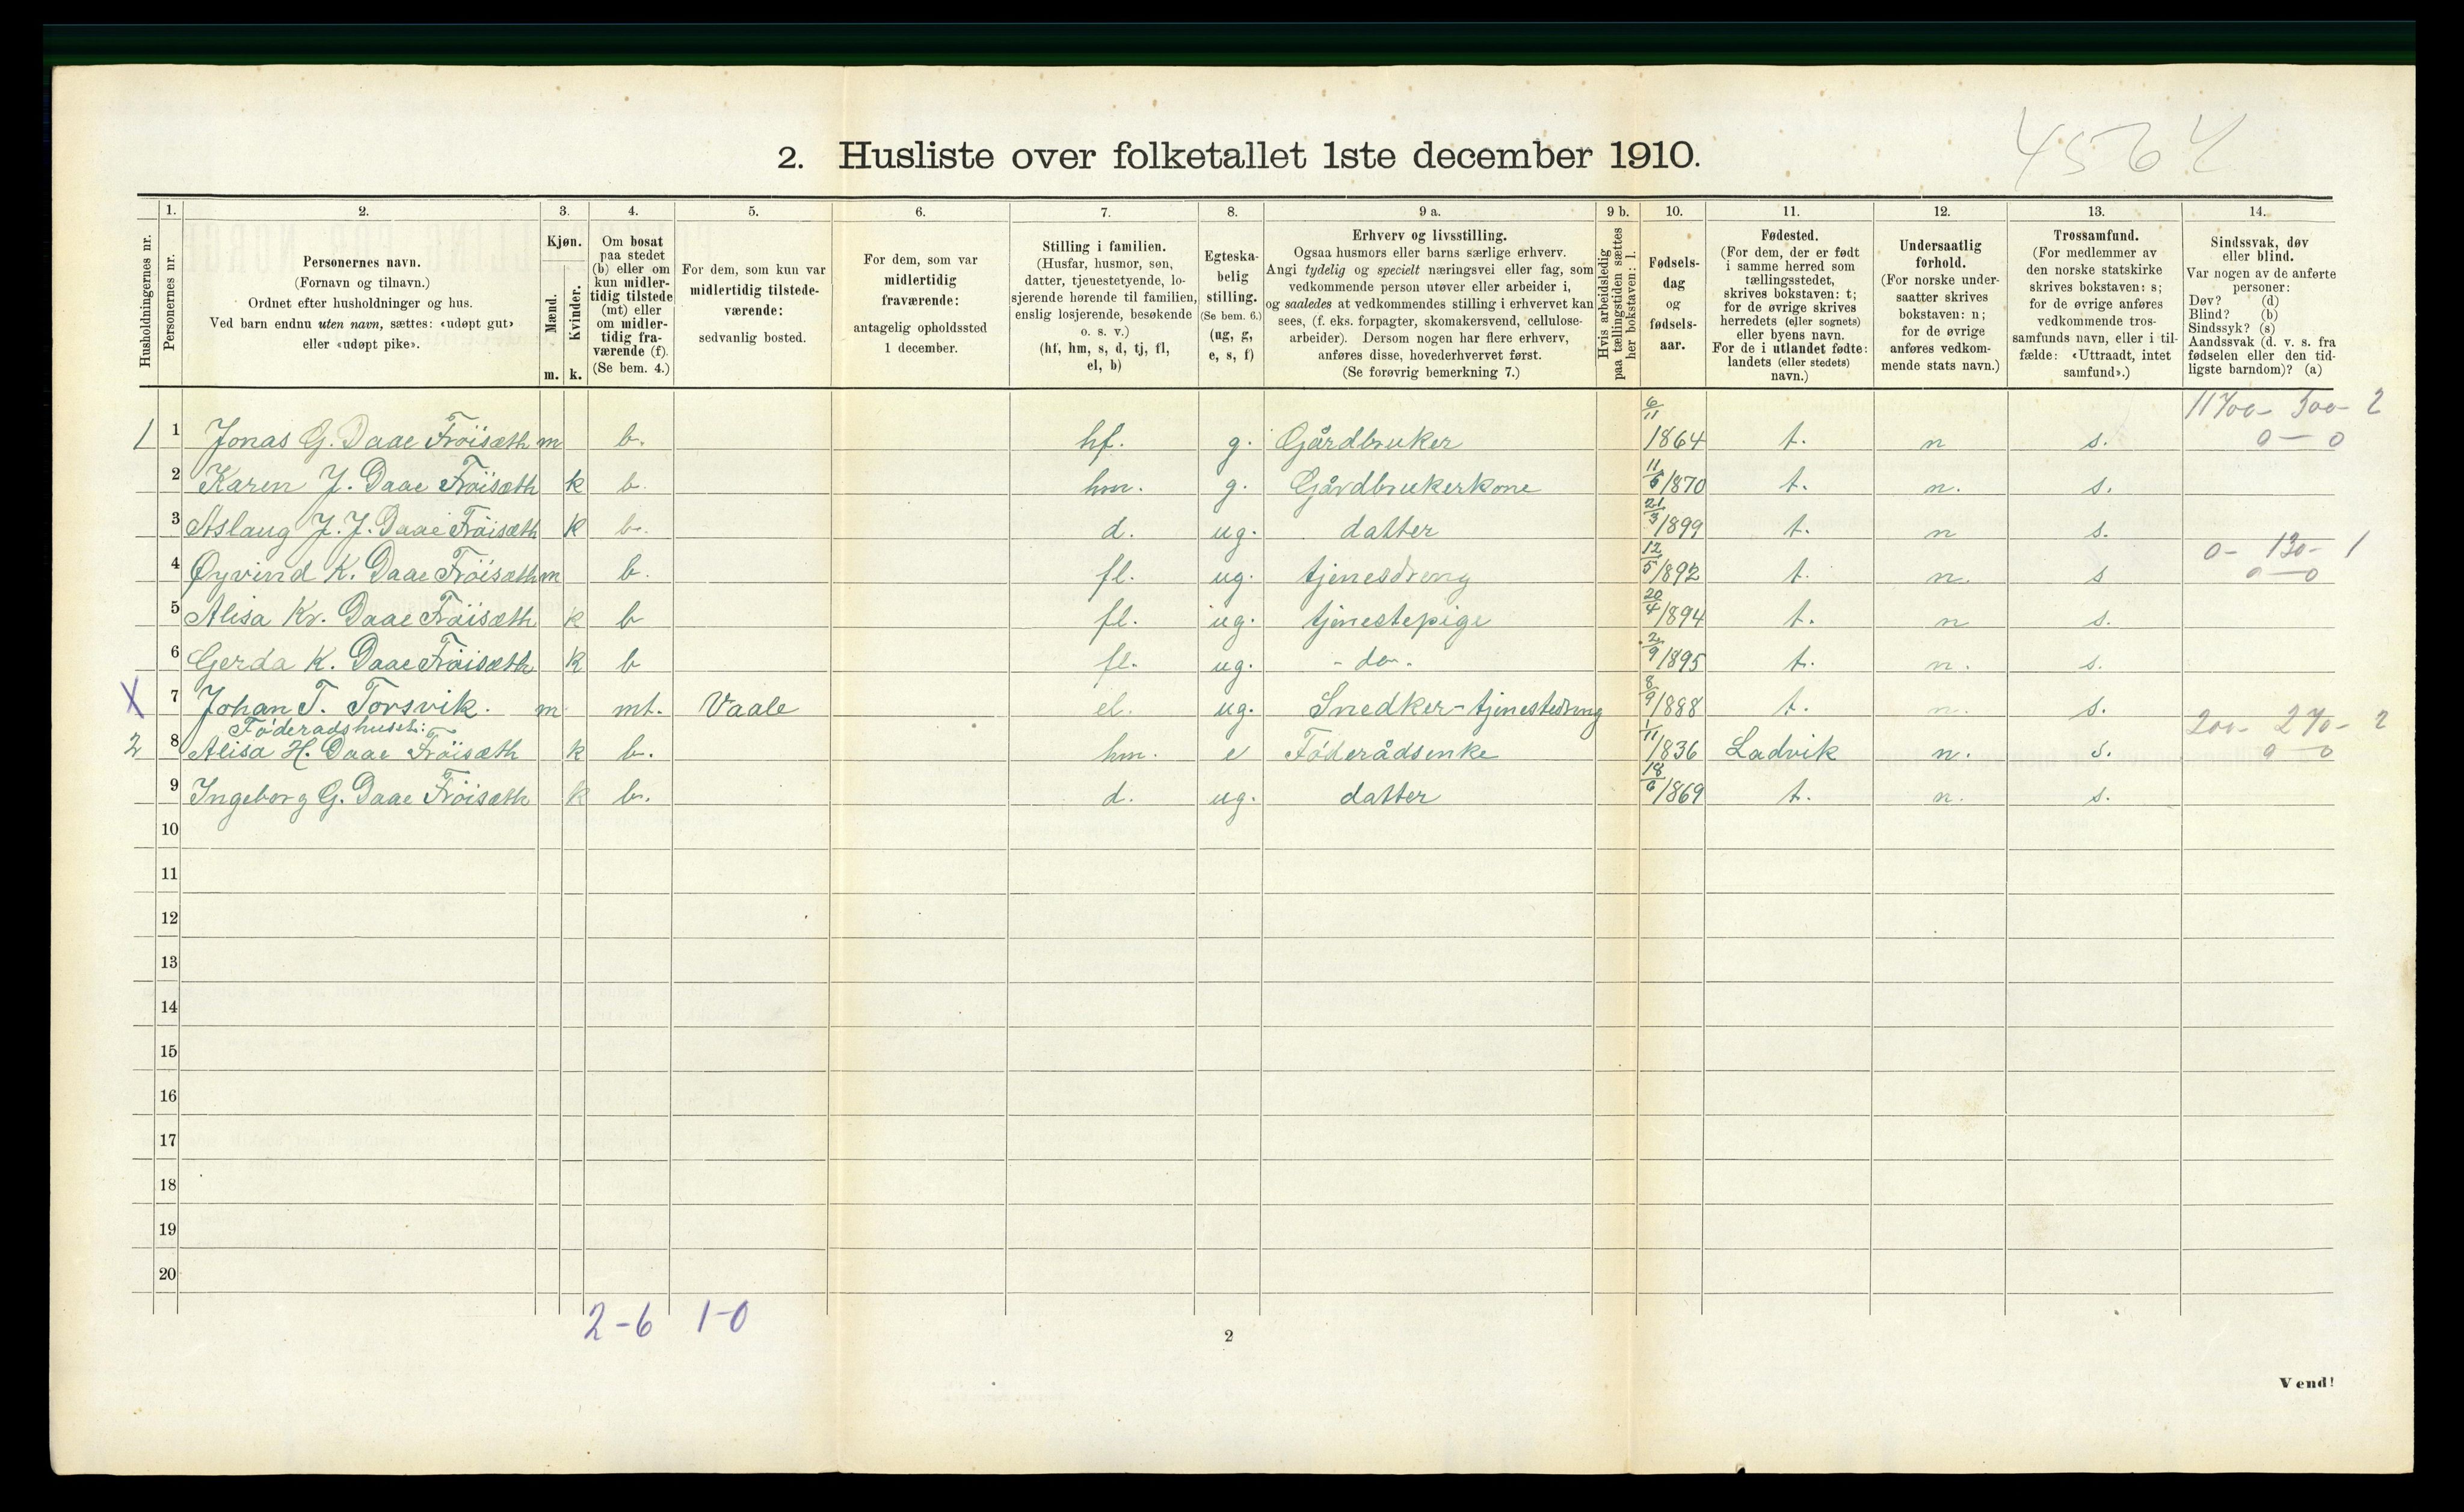 4564
2. Husliste over folketallet 1ste december 1910.
Husholdningernes nr.
1.
Personernes nr.
2.
Personernes navn.
(Fornavn og tilnavn.)
Ordnet efter husholdninger og hus.
Ved barn endnu uten navn, sættes: «udøpt gut»
eller «udøpt pike».
3.
Kjøn.
Mænd.
Kvinder.
m. k.
4.
Om bosat
paa stedet
(b) eller om
kun midler-
tidig tilstede
(mt) eller
om midler-
tidig fra-
værende (f).
(Se bem. 4.)
5.
For dem, som kun var
midlertidig tilstede-
værende:
sedvanlig bosted.
6.
For dem, som var
midlertidig
fraværende:
antagelig opholdssted
1 december.
7.
Stilling i familien.
(Husfar, husmor, søn,
datter, tjenestetyende, lo-
sjerende hørende til familien,
enslig losjerende, besøkende
o. s. v.)
(hf, hm, s, d, tj, fl,
el, b)
8.
Egteska-
belig
stilling.
(Se bem. 6.)
(ug, g,
e, s, f)
9 a.
Erhverv og livsstilling.
Ogsaa husmors eller barns særlige erhverv.
Angi tydelig og specielt næringsvei eller fag, som
vedkommende person utøver eller arbeider i,
og saaledes at vedkommendes stilling i erhvervet kan
sees, (f. eks. forpagter, skomakersvend, cellulose-
arbeider). Dersom nogen har flere erhverv,
anføres disse, hovederhvervet først.
(Se forøvrig bemerkning 7.)
9 b.
Hvis arbeidsledig
paa tællingstiden sættes
her bokstaven: l.
10.
Fødsels-
dag
og
fødsels-
aar.
11.
Fødested.
(For dem, der er født
i samme herred som
tællingsstedet,
skrives bokstaven: t;
for de øvrige skrives
herredets (eller sognets)
eller byens navn.
For de i utlandet fødte:
landets (eller stedets)
navn.)
12.
Undersaatlig
forhold.
(For norske under-
saatter skrives
bokstaven: n;
for de øvrige
anføres vedkom-
mende stats navn.)
13.
Trossamfund.
(For medlemmer av
den norske statskirke
skrives bokstaven: s;
for de øvrige anføres
vedkommende tros-
samfunds navn, eller i til-
fælde: «Uttraadt, intet
samfund».)
14.
Sindssvak, døv
eller blind.
Var nogen av de anførte
personer:
Døv? (d)
Blind? (b)
Sindssyk? (s)
Aandssvak (d. v. s. fra
fødselen eller den tid-
ligste barndom)? (a)
1 1 Jonas G. Daae Fröisæth m b. hf. g. Gårdbruker 6/11 1864 t. n s. 1100- 500- 2 0-0
2 Karen J. Daae Fröisæth k b. hm. g. Gårdbrukerkone 11/5 1870 t. n. s.
3 Aslaug J. J. Daae Fröisæth k b. d. ug. datter 21/3 1899 t. n s.
4 Øyvind K. Daae Fröisæth m b. fl. ug. tjenesdreng 12/5 1892 t. n. s 0- 130- 1 0-0
5 Alisa Kr. Daae Fröisæth k b fl. ug. tjenestepige 20/4 1894 t. n s.
6 Gerda K. Daae Fröisæth k b fl. ug. - do - 2/9 1895 t. n. s.
X 7 Johan T. Torsvik. m mt. Vaale el. ug. Snedker-tjenestedreng 8/9 1888 t. n. s.
Föderadshuset:
2 8 Alisa H. Daae Fröisæth k b. hm. e Föderådsenke 1/11 1836 Ladvik n. s. 200- 270- 2 0-0
9 Ingeborg G. Daae Fröisæth k b. d. ug. datter 18/6 1869 t. n. s.
10
11
12
13
14
15
16
17
18
19
20
2-6 1-0
2
Vend!